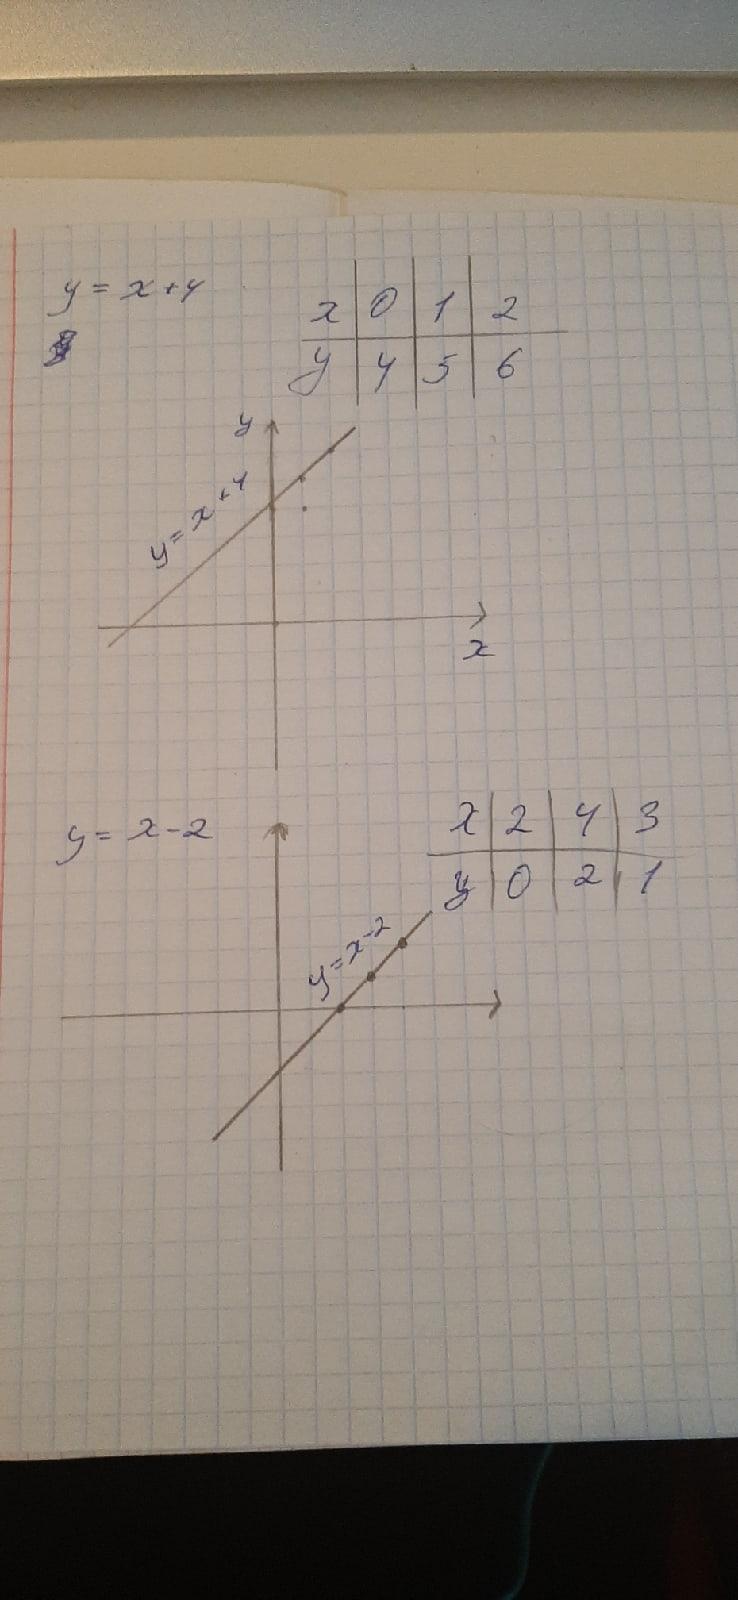 y = x+4
x 0 1 2
y 4 5 6
y
y = x+4
x
y = x-2
x 2 4 3
y 0 2 1
y=x-2